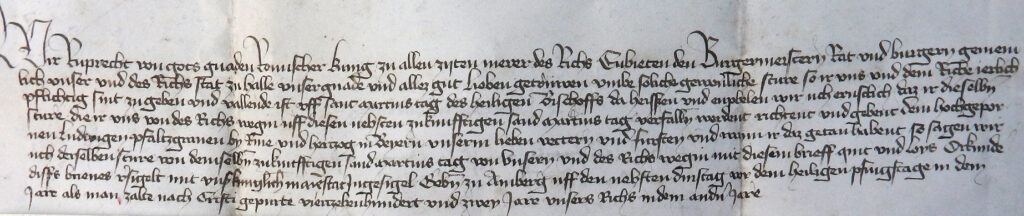 Wir Ruprecht von gots gnaden Romischer kunig zu allen zyten merer des Richs Embieten den Burgermeistern Rat und burgern gemein
lich unser und des Richs Stat zu halle unser gnade und allez gut Lieben getruwen umbe soliche gewonliche sture so ir uns und dem Riche ierlich
pflichtig sint zu geben und vallende ist uff sant martins tag des heiligen Bischoffs da heissen und enpfelen wir uch ernstlich daz ir dieselbn
sture die ir uns von des Richs wegen uff diesen nehsten zukunfftigen sand martins tag verfallen werdent richtent und gebent dem hochgepor
nen Ludwigen pfaltzgraven by Rine und hertzog in Beyern unserm lieben vettern und fursten und wann ir daz getan habent so sagen wir
uch derselben sture von demselbn zukunfftigen sand martins tag von unsern und des Richs wegen mit diesem brieff quit und loys Orkunde
diss brieves versigelt mit unserm kuniglich maiestat Ingesigel Gebn zu Amberg uff den nehsten dinstag vor dem heiligen pfingstage in dem
Jare als man zalte nach Cristi gepurte viertzehenhundert und zwey Jare unsers Richs in dem andn Jare